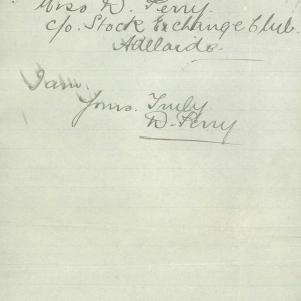 Mrs D. Perry.
c/o. Stock Exchange Club.
Adelaide.
I am.
Yours. Truly
D. Perry